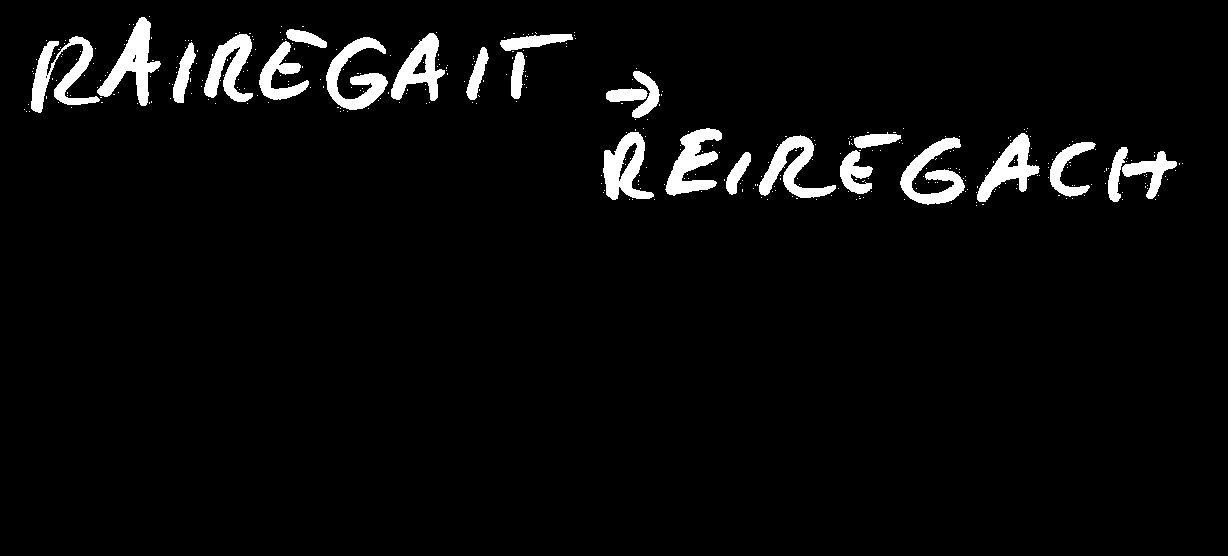 RAIREGAIT →
REIREGACH